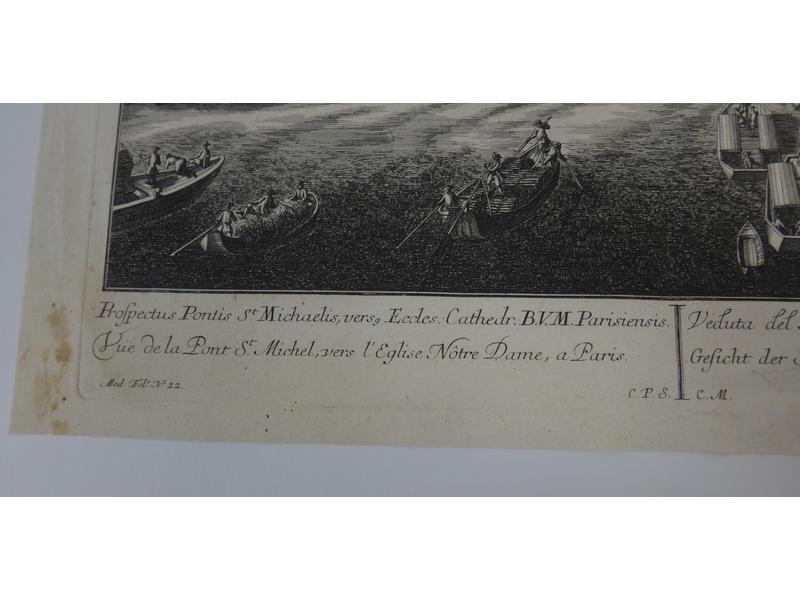 Prospectus Pontis St Michaelis, vers9 Eccles. Cathedr. B.V.M. Parisiensis.
Vüe de la Pont St. Michel, vers l'Eglise Nôtre Dame, a Paris.
Med. Fol. No 22.
C. P. S. C. M.
Veduta del
Gesicht der